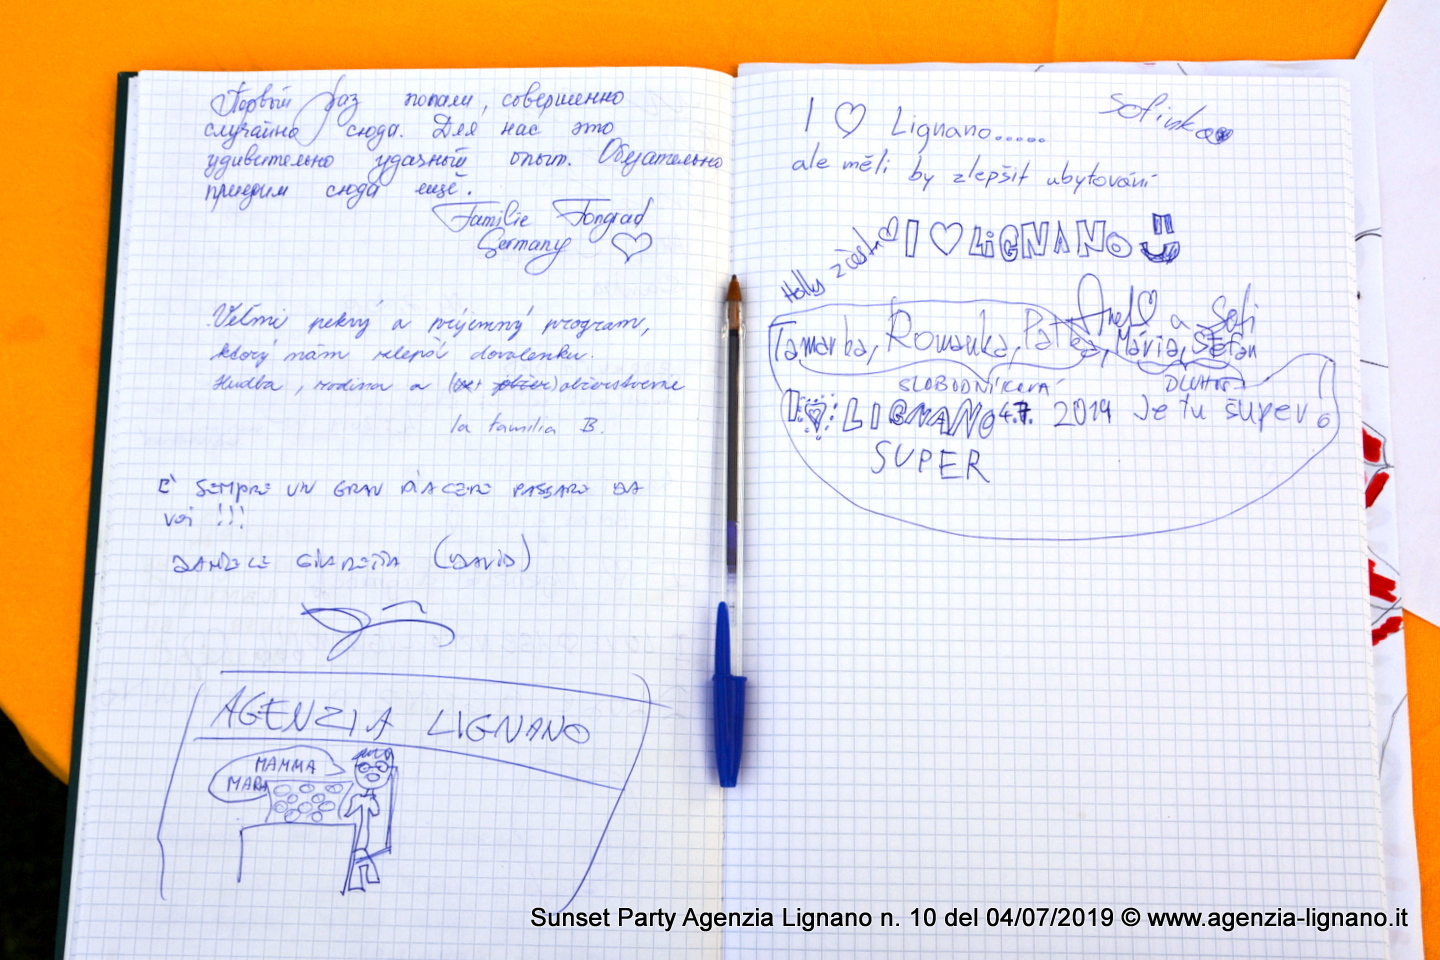 Первый раз попали, совершенно
случайно сюда. Для нас это
удивительно удачный опыт. Обязательно
приедим сюда ещё.
Familie Tongrad
Germany ♡
Veľmi pekný a príjemný program,
ktorý nám zlepšil dovolenku.
Hudba, rodina a občerstvenie
la familia B.
E' SEMPRE UN GRAN PIACERE PASSARE DA
VOI !!!
DANIELE (DAVID)
AGENZIA LIGNANO
MAMMA
MARA
I ♡ Lignano.....
Sofinka
ale měli by zlepšit ubytování
I ♡ LIGNANO
Holky z
a Sofi
Tamarka, Romanka, Mária, Štefan
SLOBODNÍKOVÁ
I ♡ LIGNANO 4.7. 2019 Je tu super
SUPER
Sunset Party Agenzia Lignano n. 10 del 04/07/2019 © www.agenzia-lignano.it